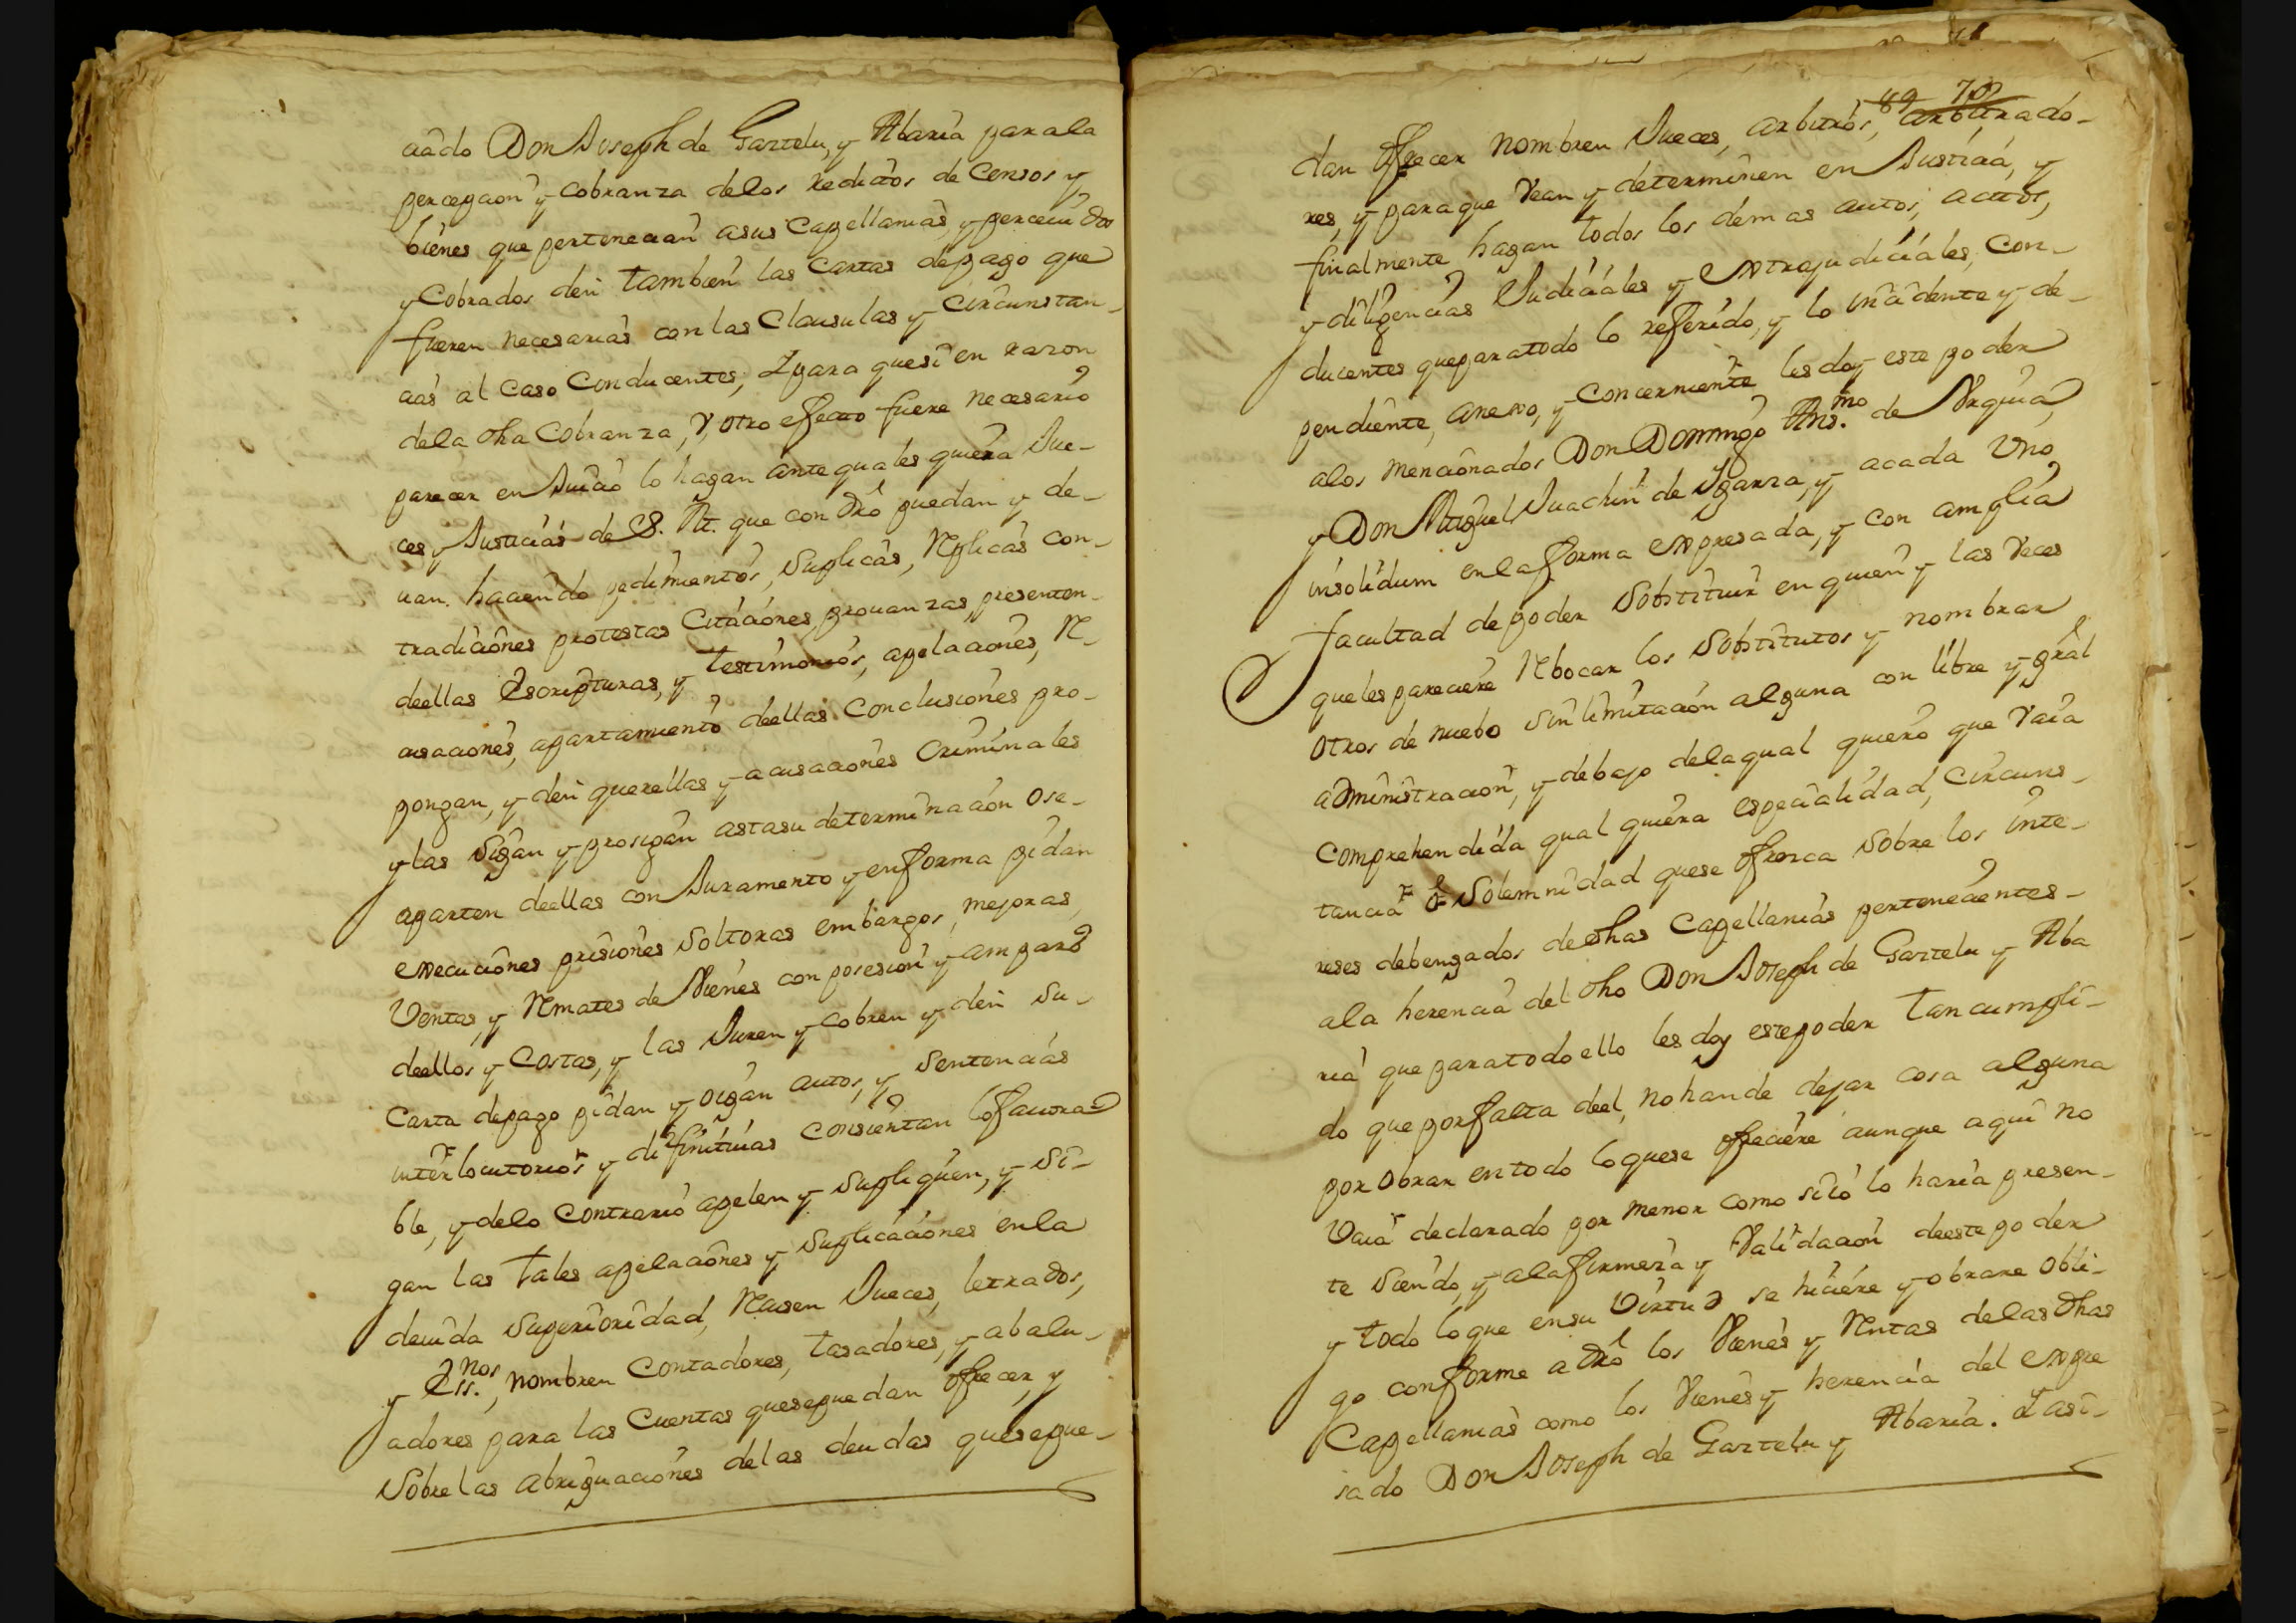 ciado Don Joseph de Gaztelu, y Abaria para la
percepcion y cobranza de los reditos de Censos y
bienes que pertenecian a sus Capellanias, y percevidos
y Cobrados den tambien las Cartas de pago que
fueren necesarias con las Clausulas y Circunstan-
cias al Caso Conducentes, Y para que si en razon
de la dha Cobranza, y otro efecto fuere necesario
parecer en Juicio lo hagan ante quales quiera Jue-
ces y Justicias de S. M. que con dro puedan y de-
uan. haciendo pedimientos, Suplicas, Replicas con-
tradiciones protestas Citaciones, prouanzas, presenten-
deellas Escripturas, y testimonios, apelaciones, R-
cusaciones, apartamiento deellas Conclusiones pro-
pongan, y den querellas y acusaciones Criminales
y las Sigan y prosigan asta su determinacion o se-
aparten deellas con Juramento y en forma pidan
execuciones prisiones Solturas embargos, mejoras,
Ventas, y Rmates de Vienes con posesion y amparo
deellos y Costas, y las Juren y cobren y den Su-
Carta de pago pidan y oigan autos, y Sentencias
interlocutorios y difinitiuas consientan lo fauora-
ble, y de lo Contrario apelen y Supliquen, y Si-
gan las tales apelaciones y Suplicaciones en la
deuida Superioridad, Rcusen Jueces, letrados,
y Ess.nos, nombren Contadores, tasadores, y abalu-
adores para las Cuentas que se puedan ofrecer, y
Sobre las abriguaciones de las deudas que se pue-
89 70
dan ofrecer nombren Jueces, arbitros, arbitrado-
res, y para que Vean y determinen en Justicia, y
finalmente hagan todos los demas autos, actos,
y diligencias Judiciales y extrajudiciales, Con-
ducentes que para todo lo referido, y lo incidente y de-
pendiente, anexo, y concerniente les doy este poder
a los mencionados Don Domingo Ans.mo de Vrquia,
y Don Miguel Juachin de Yparza, y a cada Uno
insolidum en la forma expresada, y con amplia
facultad de poder Sobstituir en quien y las Veces
que les pareciere Rbocar los Sobstitutos y nombrar
otros de nuebo sin limitacion alguna con libre y gral
administracion, y debajo de la qual quiero que Vaia
comprehendida qual quiera especialidad, Circuns-
tancia o Solemnidad que se ofrezca Sobre los inte-
reses debengados de dhas Capellanias pertenecientes-
a la herencia del dho Don Joseph de Gaztelu y Aba
ria que para todo ello les doy este poder tan cumpli-
do que por falta deel, no han de dejar cosa alguna
por obrar en todo lo que se ofreciere aunque aqui no
Vaia declarado por menor como si io lo haria presen-
te Siendo, y a la firmeza y Validacion deeste poder
y todo lo que en su Virtud se hiciere y obrare obli-
go conforme a dro los Vienes y Rntas de las dhas
Capellanias como los Vienes y herencia del expre
sado Don Joseph de Gaztelu y Abaria. Y asi-